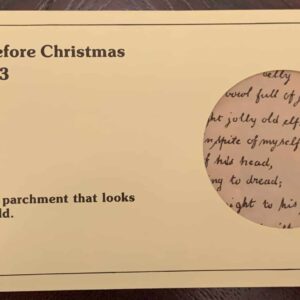 efore Christmas
3
parchment that looks
ld.
elly
bowl full of j
ht jolly old elf
inspite of myself
f his head,
ng to dread;
ight to his